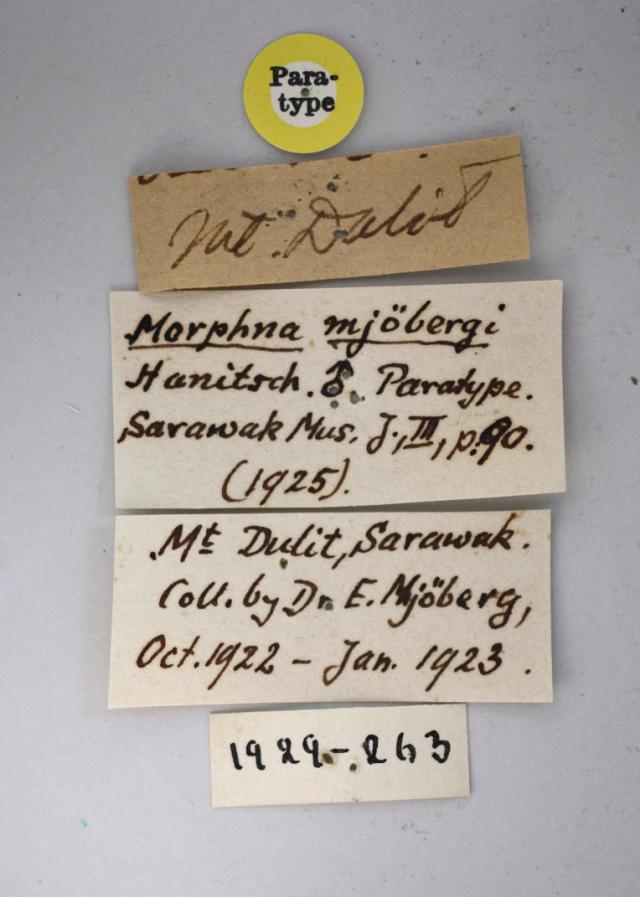 Para-
type
Mt. Dulit
Morphna mjöbergi
Hanitsch. ♂. Paratype.
Sarawak Mus. J., III, p. 90.
(1925).
Mt Dulit, Sarawak.
Coll. by Dr. E. Mjöberg,
Oct. 1922 - Jan. 1923.
1929-263